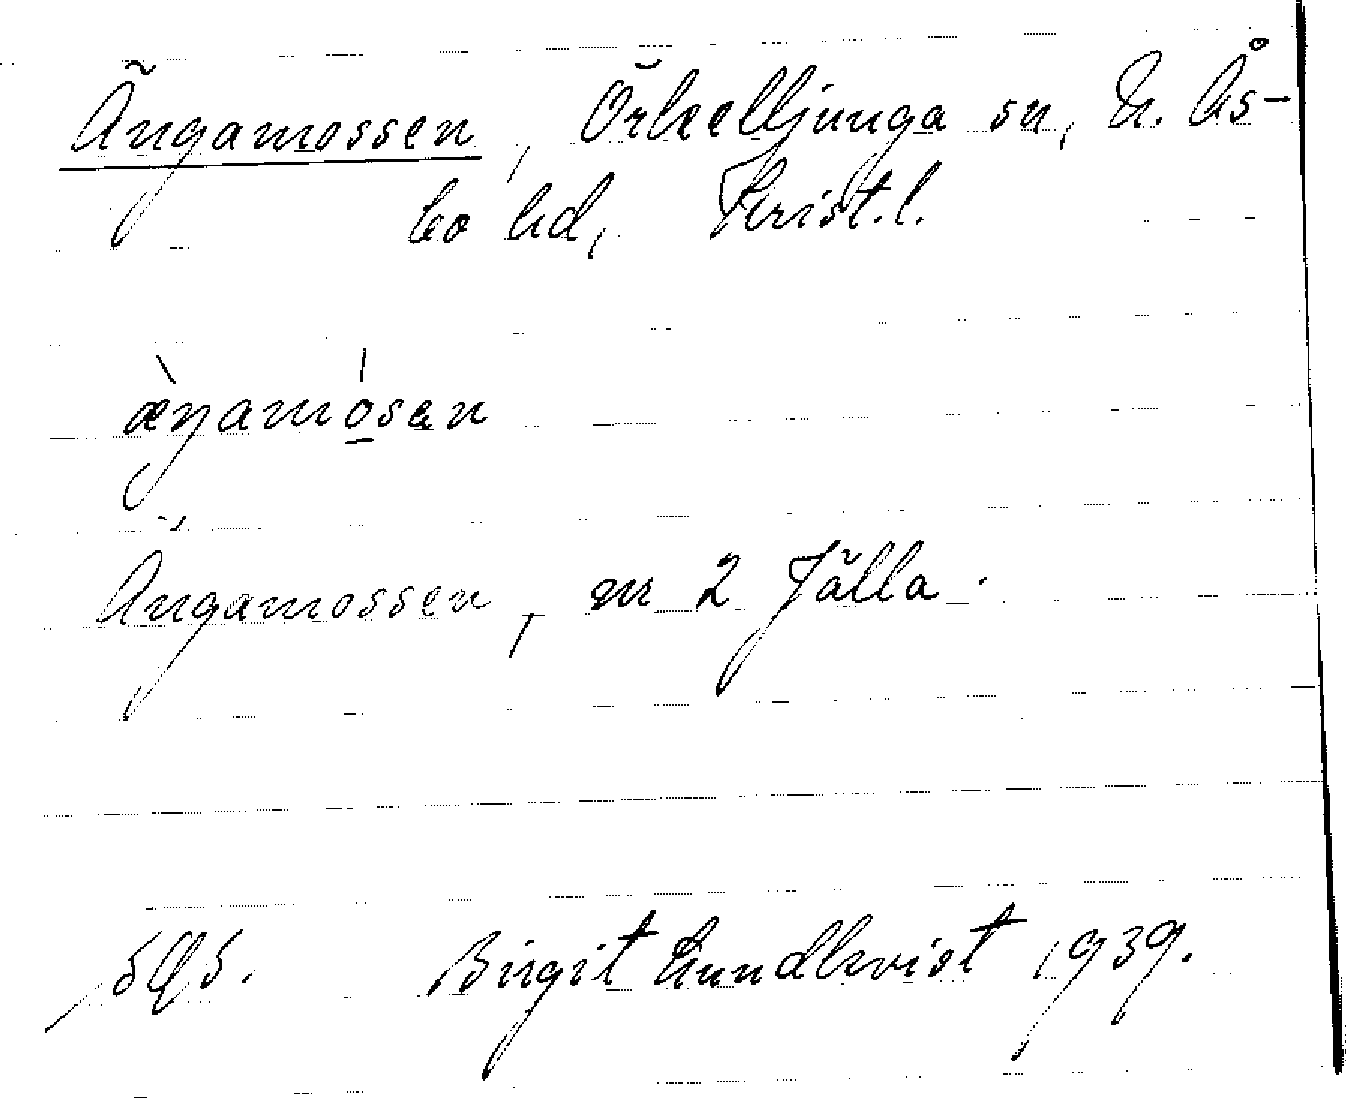 Ängamossen, Örkelljunga sn, N. Ås-
bo hd, Krist.l.
æ̀ŋamósen
Ängamossen, nr 2 Fälla.
Birgit Lundkvist 1939.